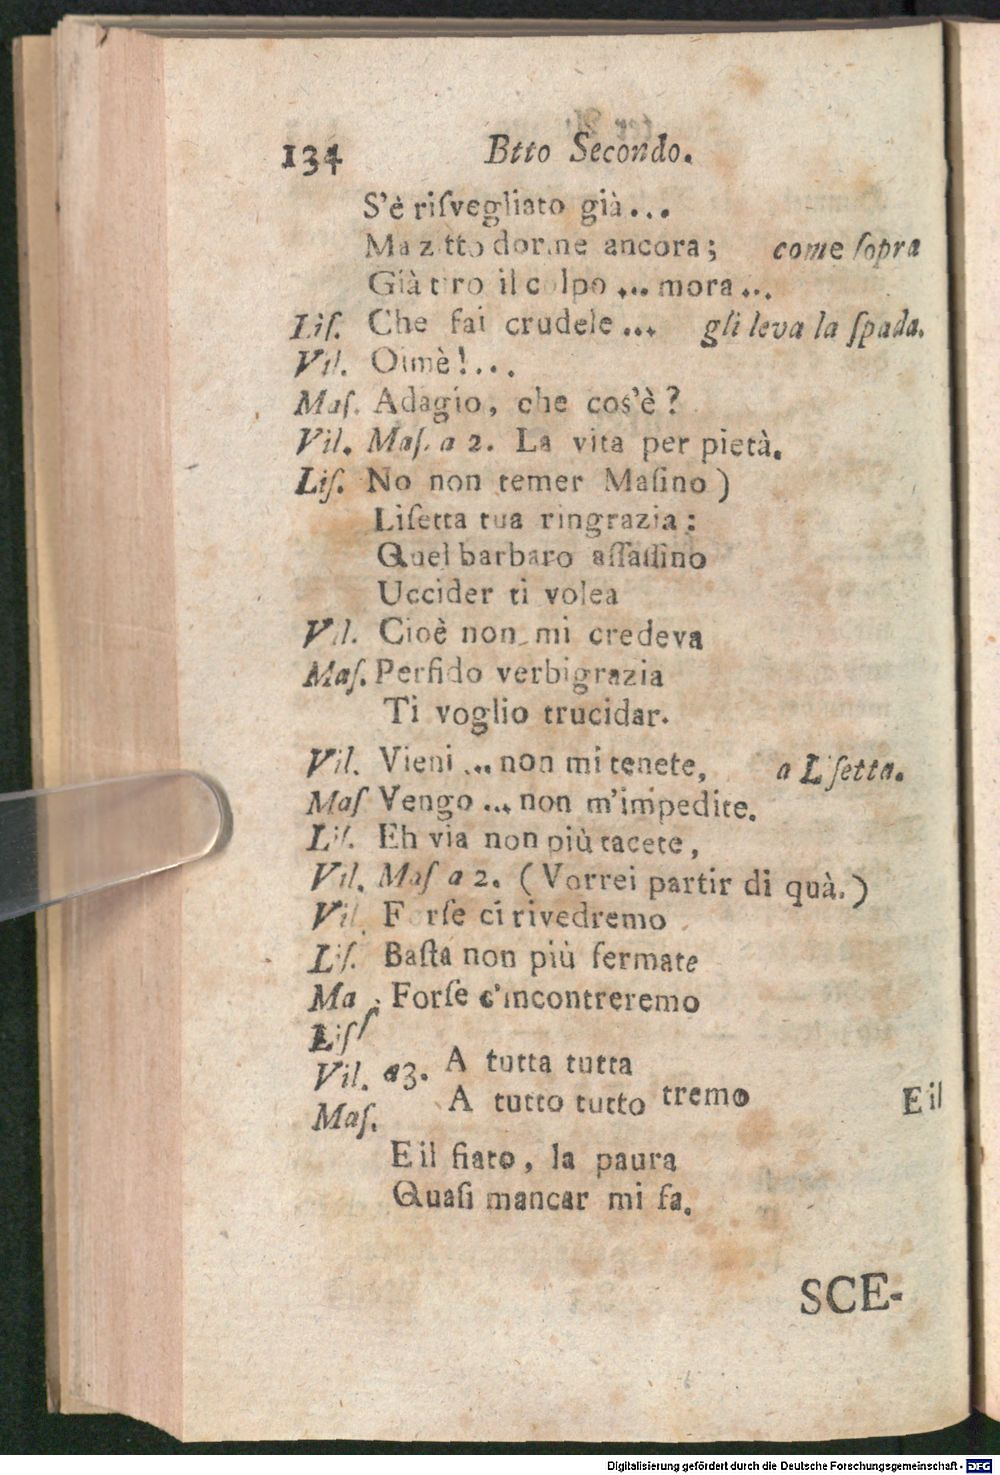 134 Btto Secondo.
S'è riſvegliato già...
Ma zitto dorme ancora; come ſopra
Già tiro il colpo ... mora ...
Liſ. Che fai crudele ... gli leva la ſpada.
Vil. Oimè!...
Maſ. Adagio, che cos'è?
Vil. Maſ. a 2. La vita per pietà.
Liſ. No non temer Maſino)
Liſetta tua ringrazia:
Quel barbaro aſſaſſino
Uccider ti volea
Vil. Cioè non mi credeva
Maſ. Perfido verbigrazia
Ti voglio trucidar.
Vil. Vieni ... non mi tenete, a Liſetta.
Maſ Vengo ... non m'impedite.
Liſ. Eh via non più tacete,
Vil. Maſ a 2. (Vorrei partir di quà.)
Vil. Forſe ci rivedremo
Liſ. Baſta non più fermate
Ma ; Forſe c'incontreremo
Liſſ
Vil. a3. A tutta tutta
Maſ. A tutto tutto tremo E il
E il fiato, la paura
Quaſi mancar mi fa.
SCE-
Digitalisierung gefördert durch die Deutsche Forschungsgemeinschaft - DFG